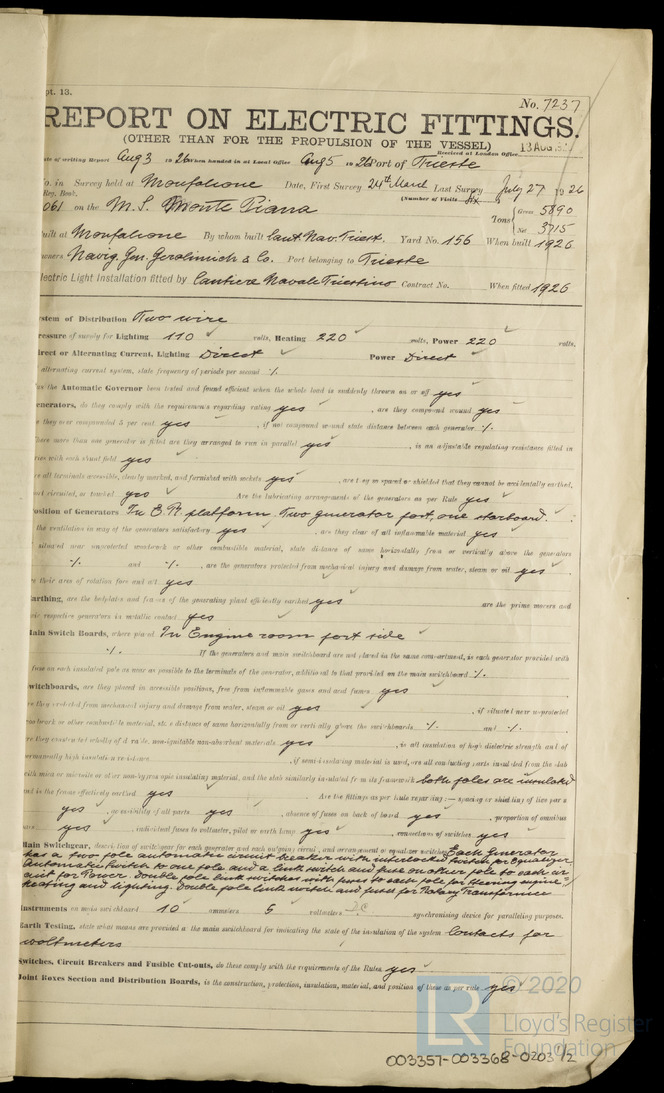 pt. 13.
No. 7237
REPORT ON ELECTRIC FITTINGS.
(OTHER THAN FOR THE PROPULSION OF THE VESSEL)
Received at London Office 13 AUG
ate of writing Report Aug 3 1926 When handed in at Local Office Aug 5 1926 Port of Trieste
o. in Survey held at Monfalcone Date, First Survey 24th March Last Survey July 27 1926
Reg. Book. (Number of Visits six)
061 on the M.S. Monte Piana Tons { Gross 5890
Net 3715
uilt at Monfalcone By whom built Cant. Nav. Triest. Yard No. 156 When built 1926
wners Navig. Gen. Gerolimich & Co. Port belonging to Trieste
lectric Light Installation fitted by Cantiere Navale Triestino Contract No. When fitted 1926
stem of Distribution Two wire
ressure of supply for Lighting 110 volts, Heating 220 volts, Power 220 volts,
irect or Alternating Current, Lighting Direct Power Direct
alternating current system, state frequency of periods per second ·/.
as the Automatic Governor been tested and found efficient when the whole load is suddenly thrown on or off yes
enerators, do they comply with the requirements regarding rating yes , are they compound wound yes
e they over compounded 5 per cent yes , if not compound wound state distance between each generator ·/.
here more than one generator is fitted are they arranged to run in parallel yes , is an adjustable regulating resistance fitted in
ries with each shunt field yes
re all terminals accessible, clearly marked, and furnished with sockets yes , are they so spaced or shielded that they cannot be accidentally earthed,
ort circuited, or touched yes Are the lubricating arrangements of the generators as per Rule yes
osition of Generators In E.R. platform. Two generator port, one starboard.
the ventilation in way of the generators satisfactory yes , are they clear of all inflammable material yes
situated near unprotected woodwork or other combustible material, state distance of same horizontally from or vertically above the generators
·/. and ·/. , are the generators protected from mechanical injury and damage from water, steam or oil yes
e their axes of rotation fore and aft yes
arthing, are the bedplates and frames of the generating plant efficiently earthed yes are the prime movers and
eir respective generators in metallic contact yes
ain Switch Boards, where placed In Engine room port side
·/. If the generators and main switchboard are not placed in the same compartment, is each generator provided with
fuse on each insulated pole as near as possible to the terminals of the generator, additional to that provided on the main switchboard ·/.
witchboards, are they placed in accessible positions, free from inflammable gases and acid fumes yes
re they protected from mechanical injury and damage from water, steam or oil yes , if situated near unprotected
oodwork or other combustible material, state distance of same horizontally from or vertically above the switchboards ·/. and ·/.
re they constructed wholly of durable, non-ignitable non-absorbent materials yes , is all insulation of high dielectric strength and of
ermanently high insulation resistance , if semi-insulating material is used, are all conducting parts insulated from the slab
ith mica or micanite or other non-hygroscopic insulating material, and the slab similarly insulated from its framework both poles are insulated
nd is the frame effectively earthed yes Are the fittings as per Rule regarding:— spacing or shielding of live parts
yes , accessibility of all parts yes , absence of fuses on back of board yes , proportion of omnibus
ars yes , individual fuses to voltmeter, pilot or earth lamp yes , connections of switches yes
ain Switchgear, description of switchgear for each generator and each outgoing circuit, and arrangement of equalizer switches Each generator
has a two pole automatic circuit breaker with interlocked switch for Equalizer
Automatic switch to one pole and a link switch and fuse on other pole to each cir
cuit for Power. Double pole link switches with fuses to each pole for steering engine,
heating and lighting. Double pole link switch and fuses for Rotary Transformer
nstruments on main switchboard 10 ammeters 5 voltmeters synchronising device for paralleling purposes.
arth Testing, state what means are provided at the main switchboard for indicating the state of the insulation of the system Contacts for
voltmeters
witches, Circuit Breakers and Fusible Cut-outs, do these comply with the requirements of the Rules yes
oint Boxes Section and Distribution Boards, is the construction, protection, insulation, material, and position of these as per rule yes
© 2020
LR Lloyd's Register
Foundation
003357-003368-0203 1/2